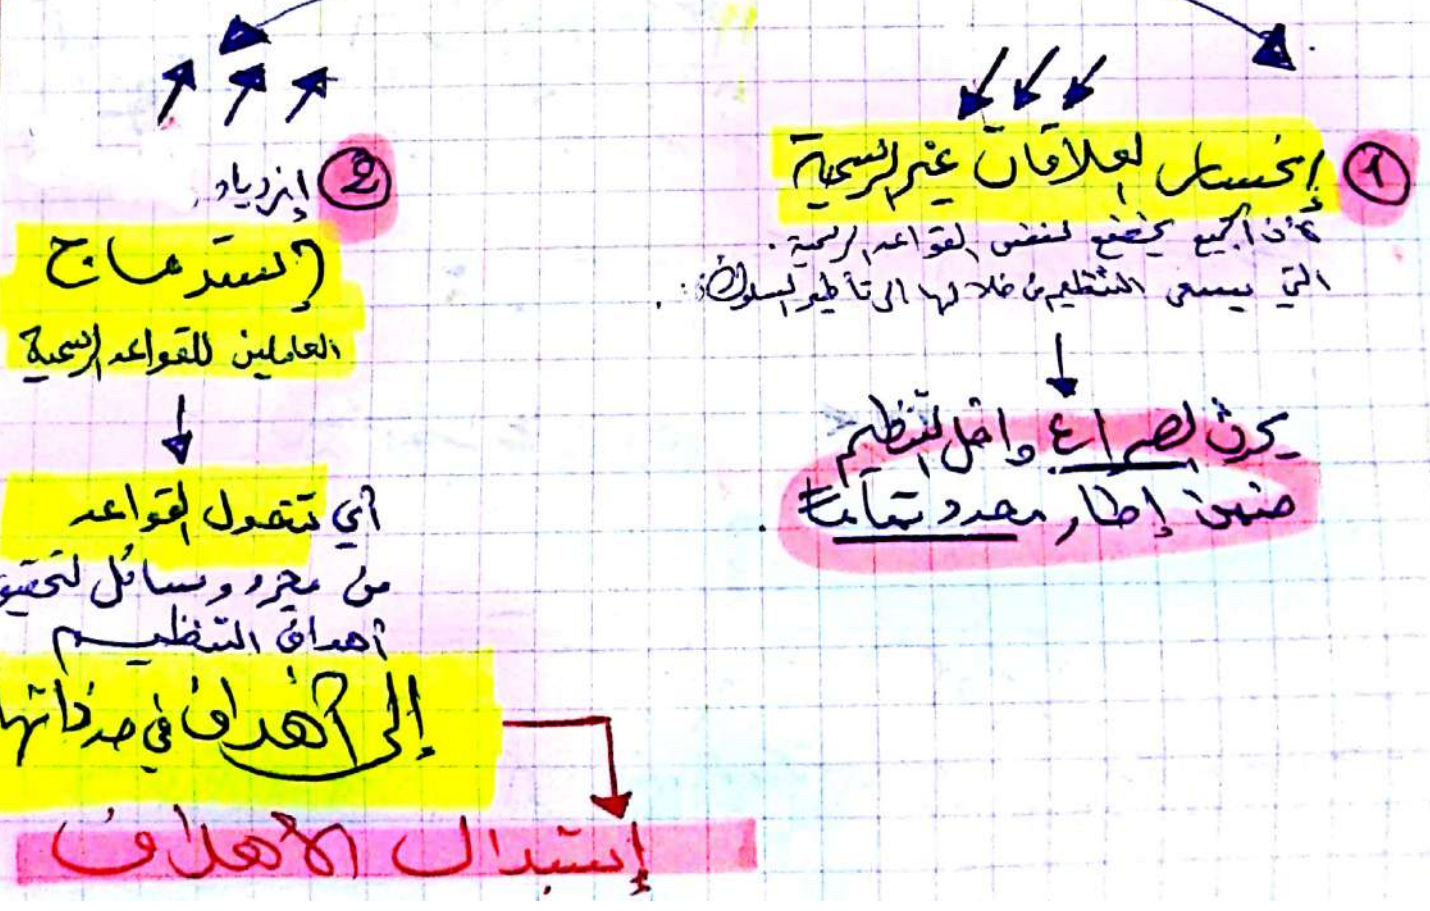 ① إنحسار العلاقات غير الرسمية
لأن الجميع يخضع لنفس القواعد الرسمية.
التي يسعى التنظيم من خلالها الى تأطير السلوك
يحرث الصراع داخل التنظيم
ضمن إطار محدد تماما.
② إزدياد
إستدماج
العاملين للقواعد الرسمية
أي تتحول القواعد
من مجرد وسائل لتحقيق
أهداف التنظيم
إلى أهداف في حد ذاتها
إستبدال الأهداف